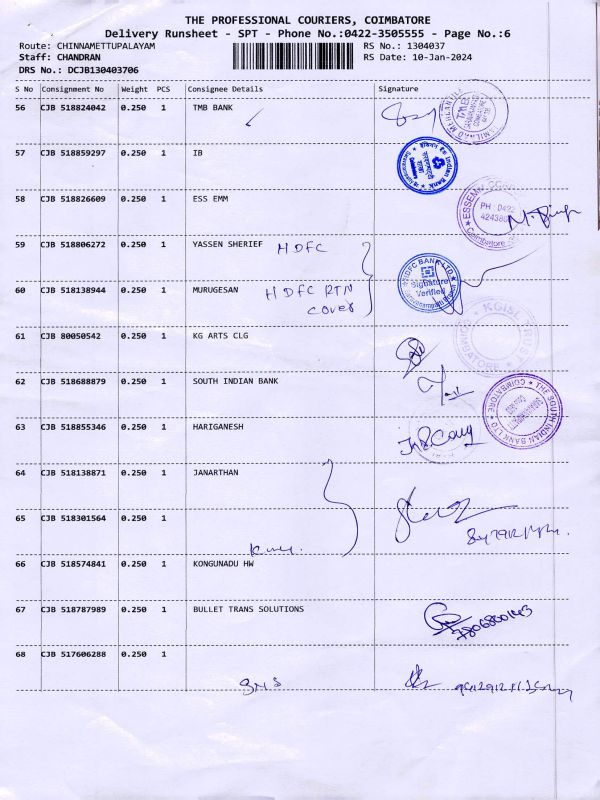 THE PROFESSIONAL COURIERS, COIMBATORE
Delivery Runsheet - SPT - Phone No.:0422-3505555 - Page No.:6
Route: CHINNAMETTUPALAYAM RS No.: 1304037
Staff: CHANDRAN RS Date: 10-Jan-2024
DRS No.: DCJB130403706
S No Consignment No Weight PCS Consignee Details Signature
56 CJB 518824042 0.250 1 TMB BANK
57 CJB 518859297 0.250 1 IB
Indian Bank
58 CJB 518826609 0.250 1 ESS EMM
PH 0422
59 CJB 518806272 0.250 1 YASSEN SHERIEF HDFC
HDFC BANK LTD
Signature
Verified
60 CJB 518138944 0.250 1 MURUGESAN HDFC RTN
COVER
61 CJB 80050542 0.250 1 KG ARTS CLG
62 CJB 518688879 0.250 1 SOUTH INDIAN BANK
THE SOUTH INDIAN BANK LTD
COIMBATORE
63 CJB 518855346 0.250 1 HARIGANESH
64 CJB 518138871 0.250 1 JANARTHAN
65 CJB 518301564 0.250 1
66 CJB 518574841 0.250 1 KONGUNADU HW
67 CJB 518787989 0.250 1 BULLET TRANS SOLUTIONS
68 CJB 517606288 0.250 1